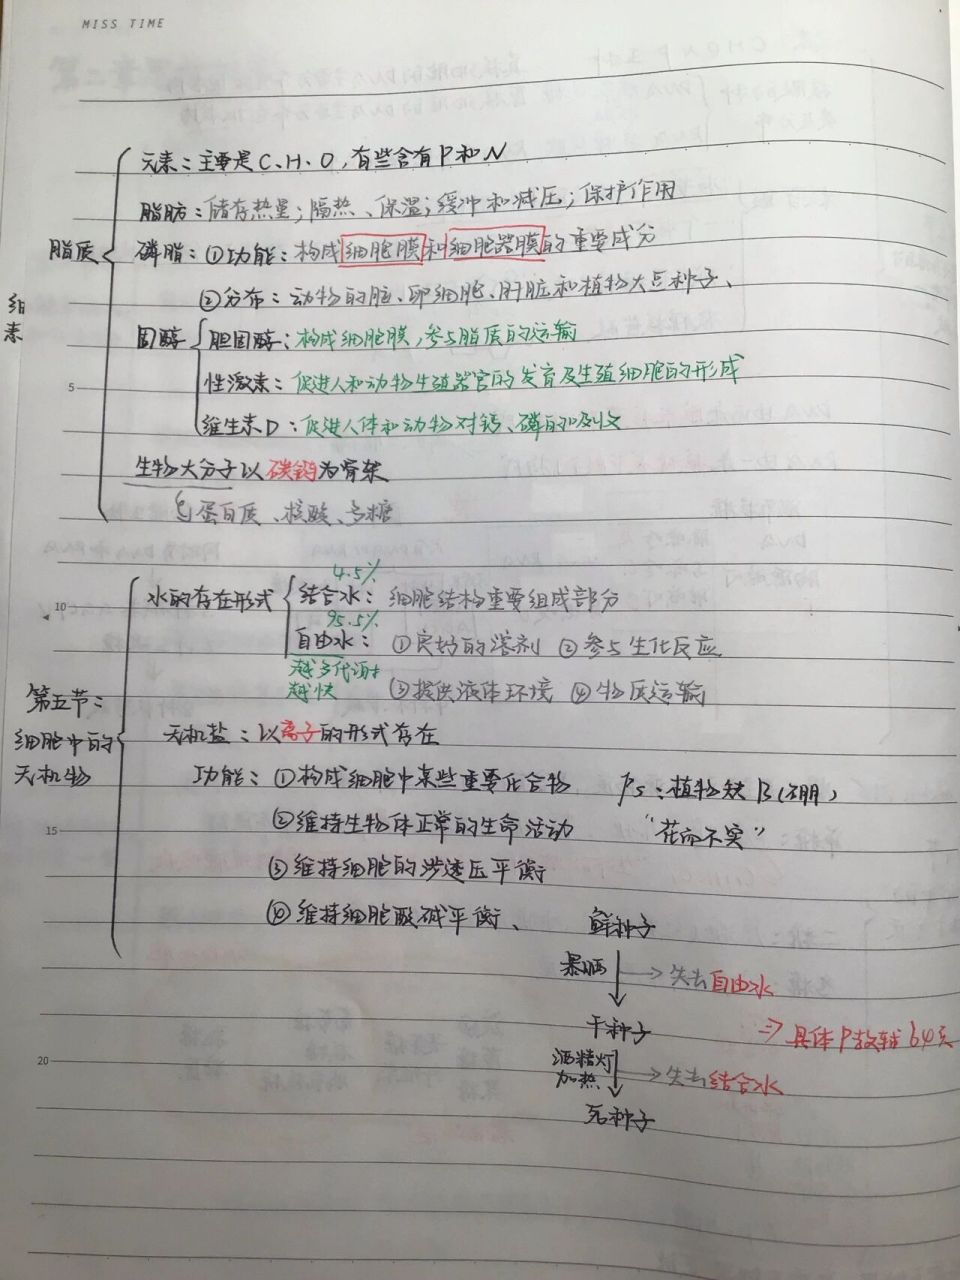 MISS TIME
元素：主要是C、H、O，有些含有P和N
脂肪：储存热量；隔热、保温；缓冲和减压；保护作用
脂质
磷脂：①功能：构成细胞膜和细胞器膜的重要成分
②分布：动物的脑、卵细胞、肝脏和植物大豆种子、
固醇
胆固醇：构成细胞膜，参与脂质的运输
5
性激素：促进人和动物生殖器官的发育及生殖细胞的形成
维生素D：促进人体和动物对钙、磷的吸收
生物大分子以碳链为骨架
蛋白质、核酸、多糖
4.5%
10
水的存在形式
结合水：细胞结构重要组成部分
95.5%
自由水：①良好的溶剂 ②参与生化反应
越多代谢
越快
③提供液体环境 ④物质运输
第五节：
细胞中的
无机物
无机盐：以离子的形式存在
功能：①构成细胞中某些重要化合物
Ps：植物缺B（硼）
15
②维持生物体正常的生命活动
“花而不实”
③维持细胞的渗透压平衡
④维持细胞酸碱平衡、
鲜种子
暴晒
→失去自由水
干种子
⇒具体P教辅64页
20
酒精灯
加热
→失去结合水
死种子